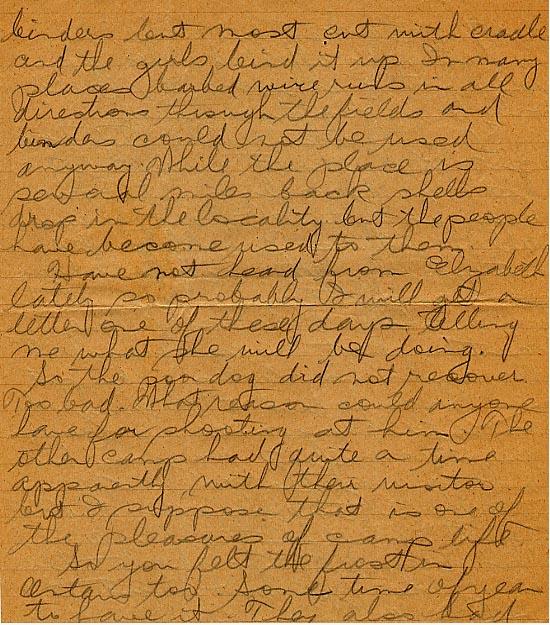 binders but most cut with cradle
and the girls bind it up. In many
places barbed wire runs in all
directions through the fields and
bindas could not be used
anyway. While the place is
several miles back shells
drop in the locality but the people
have become used to them.
Have not heard from Elizabeth
lately so probably I will get a
letter one of these days telling
me what she will be doing.
So the poor dog did not recover.
Too bad. What reason could anyone
have for shooting at him. The
other camp had quite a time
apparently with their visitor
but I suppose that is one of
the pleasures of camp life.
So you felt the frost in
Ontario too. Some time of year
to have it. They also had